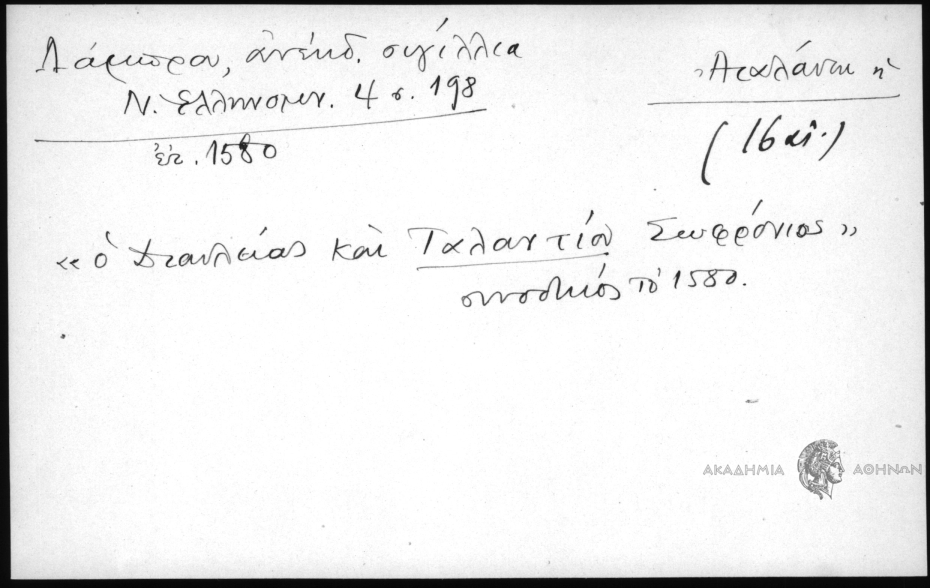 Λάμπρου, ἀνέκδ. σιγίλλια
Ν. Ἑλληνομν. 4 σ. 198
ἔτ. 1580
Ἀταλάντη ἡ
(16 αἰ.)
« ὁ Δαυλείας καὶ Ταλαντίου Σωφρόνιος »
συνοδικός τὸ 1580.
ΑΚΑΔΗΜΙΑ ΑΘΗΝΩΝ